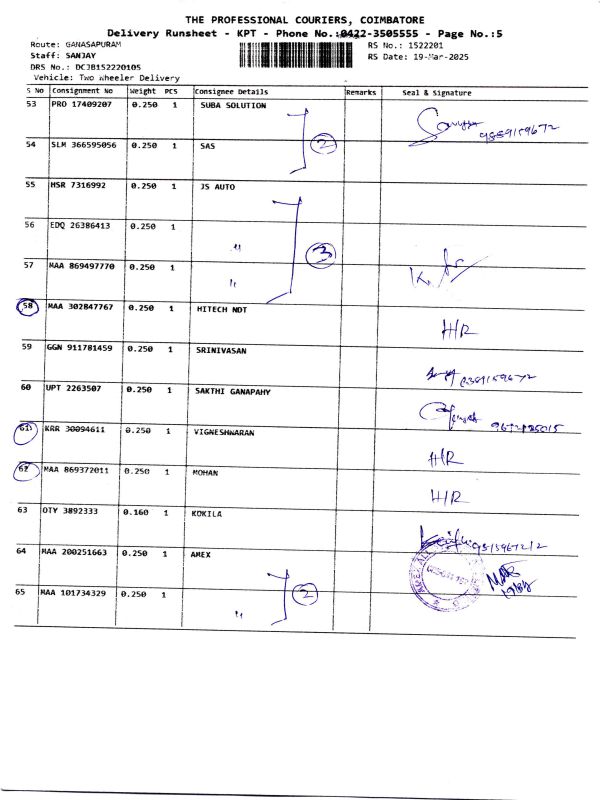 THE PROFESSIONAL COURIERS, COIMBATORE
Delivery Runsheet - KPT - Phone No.:0422-3505555 - Page No.:5
Route: GANASAPURAM RS No.: 1522201
Staff: SANJAY RS Date: 19-Mar-2025
DRS No.: DCJB152220105
Vehicle: Two Wheeler Delivery
S No Consignment No Weight PCS Consignee Details Remarks Seal & Signature
53 PRO 17409207 0.250 1 SUBA SOLUTION
2
54 SLM 366595056 0.250 1 SAS
55 HSR 7316992 0.250 1 JS AUTO
56 EDQ 26386413 0.250 1 "
3
57 MAA 869497770 0.250 1 "
58 MAA 302847767 0.250 1 HITECH NDT H/R
59 GGN 911781459 0.250 1 SRINIVASAN
60 UPT 2263507 0.250 1 SAKTHI GANAPAHY
61 KRR 30094611 0.250 1 VIGNESHWARAN H/R
62 MAA 869372011 0.250 1 MOHAN H/R
63 OTY 3892333 0.160 1 KOKILA
64 MAA 200251663 0.250 1 AMEX
2
65 MAA 101734329 0.250 1 "